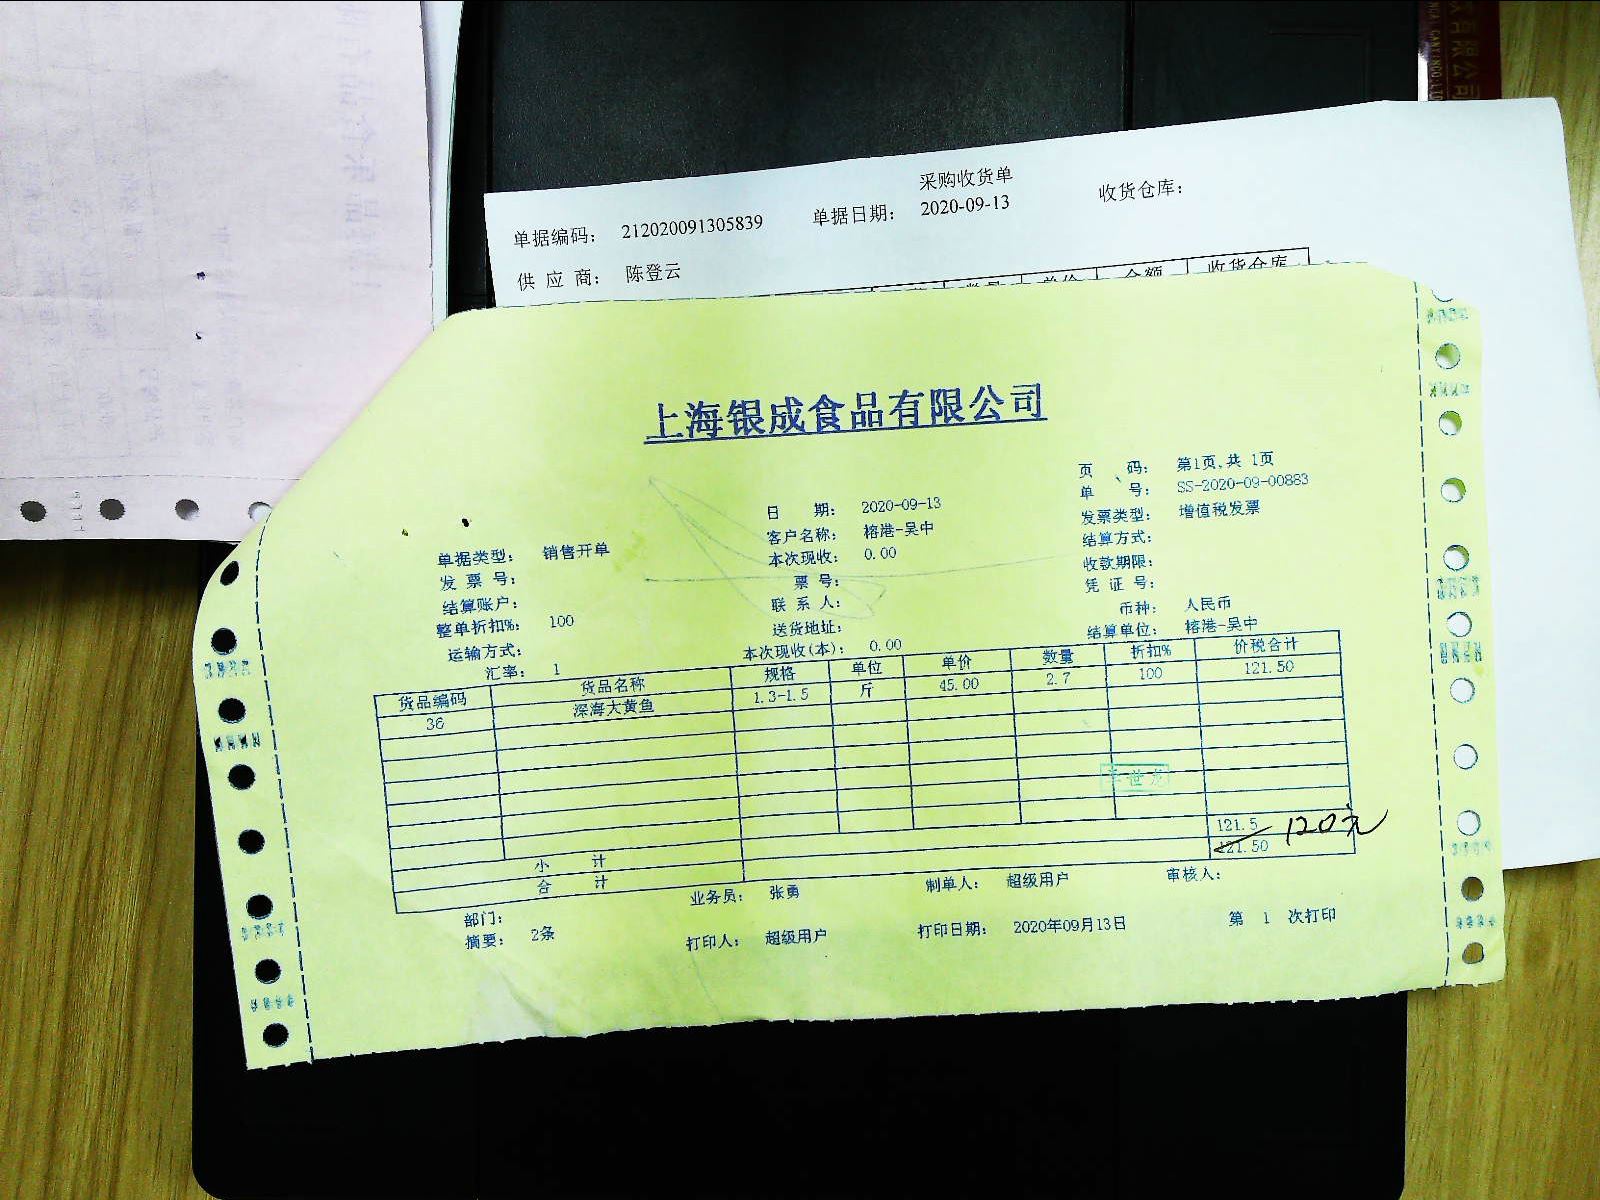 采购收货单
单据编码: 212020091305839 单据日期: 2020-09-13 收货仓库:
供 应 商: 陈登云
数量 单价 金额 收货仓库
上海银成食品有限公司
页 码: 第1页,共 1页
单 号: SS-2020-09-00883
日 期: 2020-09-13 发票类型: 增值税发票
单据类型: 销售开单 客户名称: 榕港-吴中 结算方式:
发 票 号: 本次现收: 0.00 收款期限:
结算账户: 票 号: 凭 证 号:
整单折扣%: 100 联 系 人: 币种: 人民币
运输方式: 送货地址: 结算单位: 榕港-吴中
汇率: 1 本次现收(本): 0.00
货品编码 货品名称 规格 单位 单价 数量 折扣% 价税合计
36 深海大黄鱼 1.3-1.5 斤 45.00 2.7 100 121.50
小 计 121.5 120元
合 计 121.50
部门: 业务员: 张勇 制单人: 超级用户 审核人:
摘要: 2条 打印人: 超级用户 打印日期: 2020年09月13日 第 1 次打印